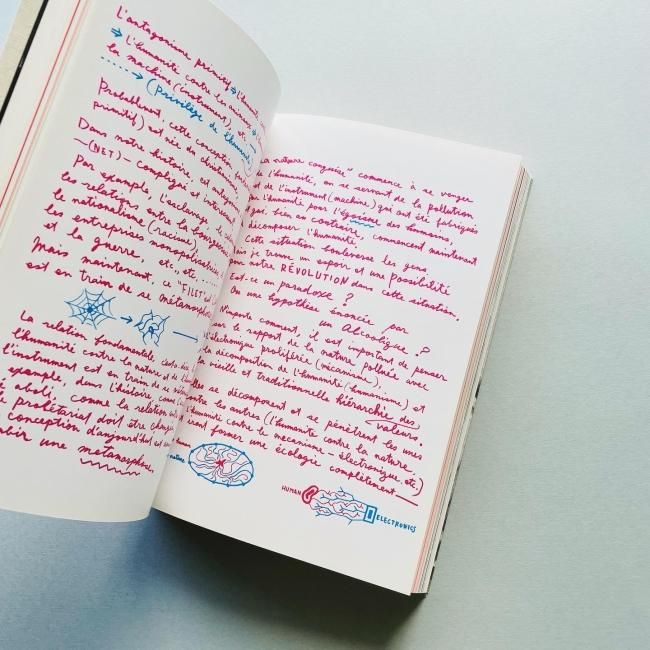 L'antagonisme primitif → l'huma
→ L'humanité contre les animaux →
la machine (instrument), etc.
......→ (Privilège de l'humanité)
Probablement, cette conception
primitif) est née du christianis
Dans notre histoire, cet
—(NET)— compliqué et inter
Par exemple, l'esclavage, le
les relations entre la bourgeoisie
le nationalisme (racisme),
les entreprises monopolisatrices
et la guerre, etc., etc, ...
Mais maintenant, ce "FILET" est
est en train de se métamorphos
La relation fondamentale, c'est-à-di
l'humanité contre la nature et de l
l'instrument est en train de se
exemple, dans l'histoire, comme
aboli, comme la relation
le prolétariat doit être chang
conception d'aujourd'hui est en
subir une métamorphose.
la nature conquise" commence à se venger
l'humanité, en se servant de la pollution
et de l'instrument (machine) qui ont été fabriqués
l'humanité pour l'égoïsme des humains,
qui, bien au contraire, commencent maintenant
décomposer l'humanité.
Cette situation bouleverse les gens,
mais je trouve un espoir et une possibilité
pour notre RÉVOLUTION dans cette situation.
Est-ce un paradoxe ?
Ou une hypothèse énoncée par
un Alcoolique . ?
N'importe comment, il est important de penser
sur le rapport de la nature polluée avec
l'électronique proliférée (mécanisme),
la décomposition de l'humanité (humanisme), et
la vieille et traditionnelle hiérarchie des
valeurs.
elles se décomposent et se pénètrent les unes
contre les autres (l'humanité contre la nature,
l'humanité contre le mecanisme - électronique etc.)
vont former une écologie complètement
nature
HUMAN
ELECTRONICS